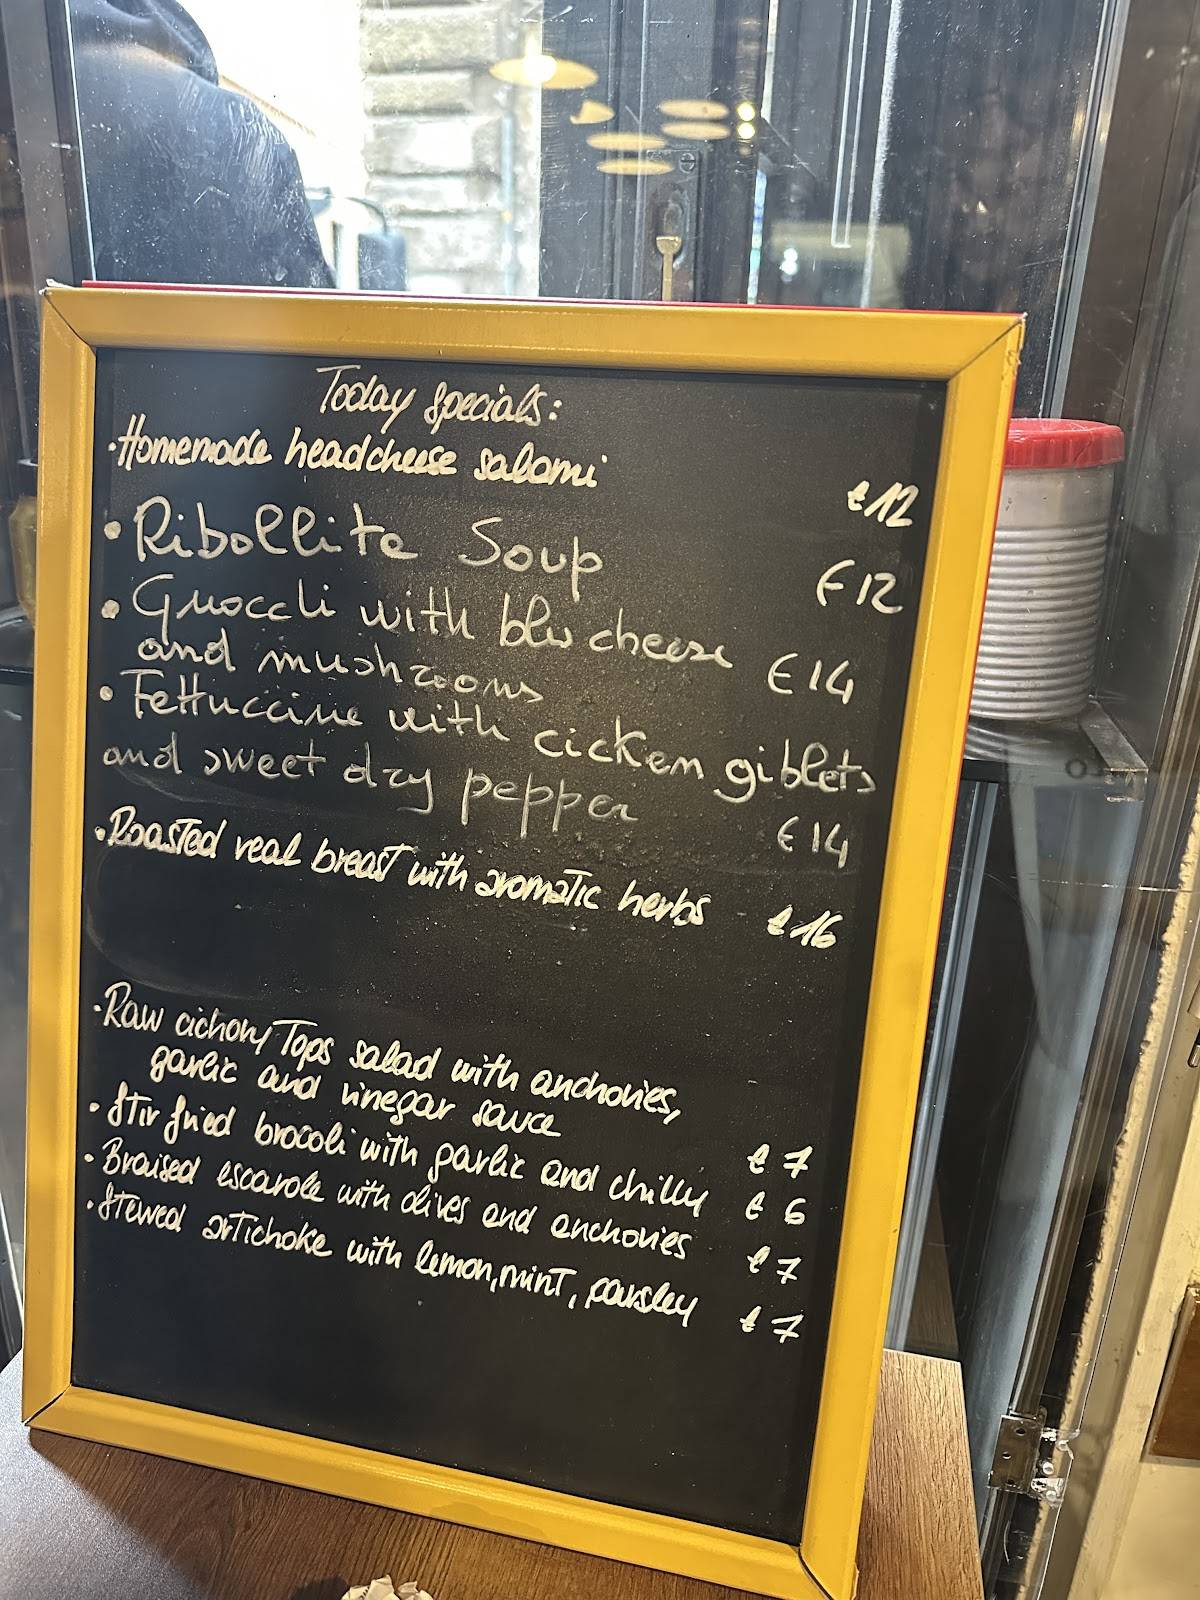 Today specials:
• Homemade headcheese salami €12
• Ribollita Soup €12
• Gnocchi with blu cheese
and mushrooms €14
• Fettuccine with cicken giblets
and sweet dry pepper €14
• Roasted veal breast with aromatic herbs €16
• Raw cichory Tops salad with anchovies,
garlic and vinegar sauce €7
• Stir fried brocoli with garlic and chilly €6
• Braised escarole with olives and anchovies €7
• Stewed artichoke with lemon, mint, parsley €7